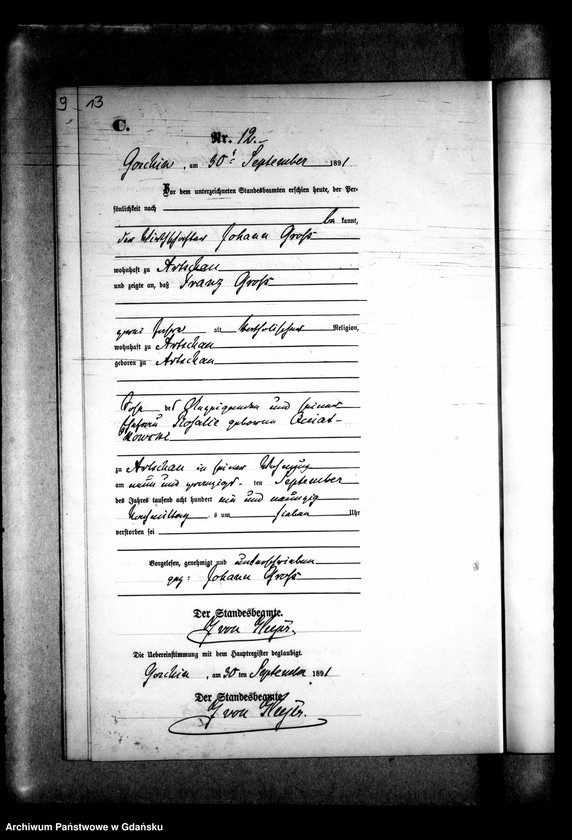 9 13
C.
Nr. 12.
Goschin, am 30ten September 1891
Vor dem unterzeichneten Standesbeamten erschien heute, der Per-
sönlichkeit nach
be kannt,
der Wirthschafter Johann Groß
wohnhaft zu Artschau
und zeigte an, daß Franz Groß
zwei Jahre alt katholischer Religion,
wohnhaft zu Artschau
geboren zu Artschau
Sohn des Anzeigenden und seiner
Ehefrau Rosalie geborene
zu Artschau in seiner Wohnung
am neun und zwanzigs- ten September
des Jahres tausend acht hundert ein und neunzig
Nachmittag s um sieben Uhr
verstorben sei
Vorgelesen, genehmigt und unterschrieben
gez: Johann Groß
Der Standesbeamte.
J von Heyer.
Die Uebereinstimmung mit dem Hauptregister beglaubigt.
Goschin, am 30 ten September 1891
Der Standesbeamte
J von Heyer.
Archiwum Państwowe w Gdańsku